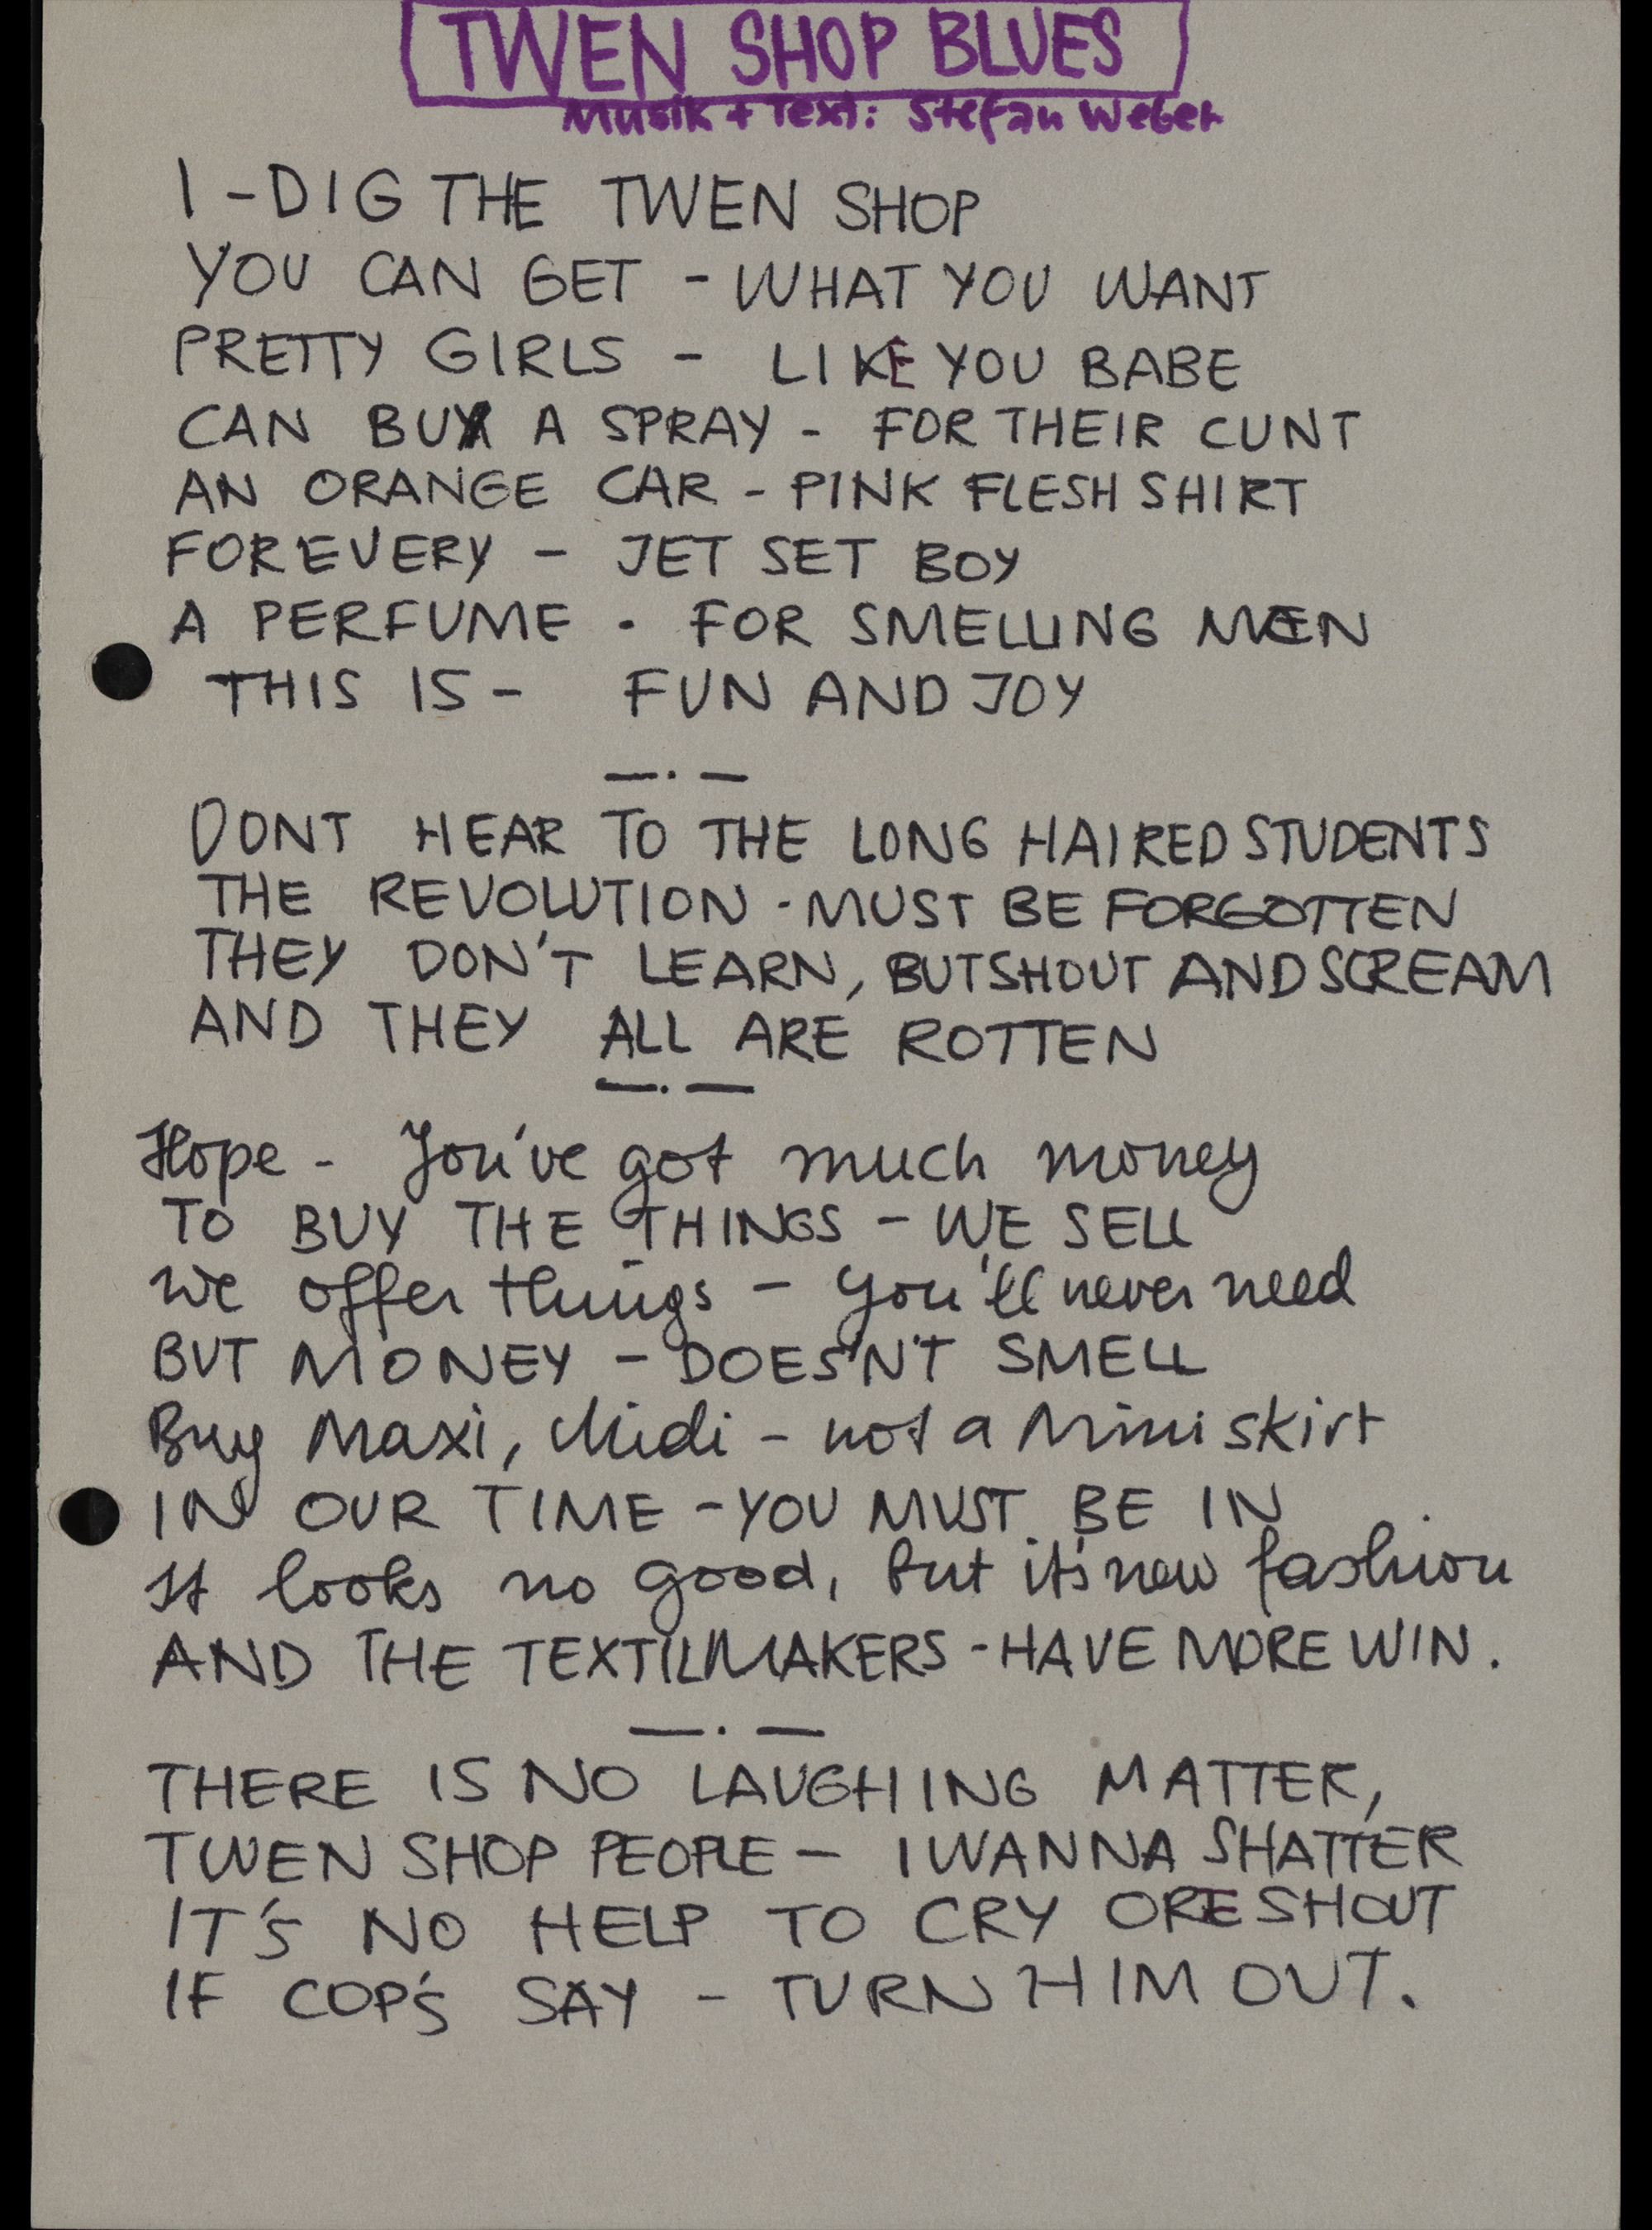 TWEN SHOP BLUES
Musik + Text: Stefan Weber
I - DIG THE TWEN SHOP
YOU CAN GET - WHAT YOU WANT
PRETTY GIRLS - LIKE YOU BABE
CAN BUY A SPRAY - FOR THEIR CUNT
AN ORANGE CAR - PINK FLESH SHIRT
FOR EVERY - JET SET BOY
A PERFUME - FOR SMELLING MEN
THIS IS - FUN AND JOY
—.—
DONT HEAR TO THE LONG HAIRED STUDENTS
THE REVOLUTION - MUST BE FORGOTTEN
THEY DON'T LEARN, BUT SHOUT AND SCREAM
AND THEY ALL ARE ROTTEN
—.—
Hope - You've got much money
TO BUY THE THINGS - WE SELL
we offer things - you'll never need
BUT MONEY - DOES'N'T SMELL
Buy Maxi, Midi - not a Mini skirt
IN OUR TIME - YOU MUST BE IN
It looks no good, but it's new fashion
AND THE TEXTILMAKERS - HAVE MORE WIN.
—.—
THERE IS NO LAUGHING MATTER,
TWEN SHOP PEOPLE - I WANNA SHATTER
IT'S NO HELP TO CRY ORE SHOUT
IF COP'S SAY - TURN HIM OUT.